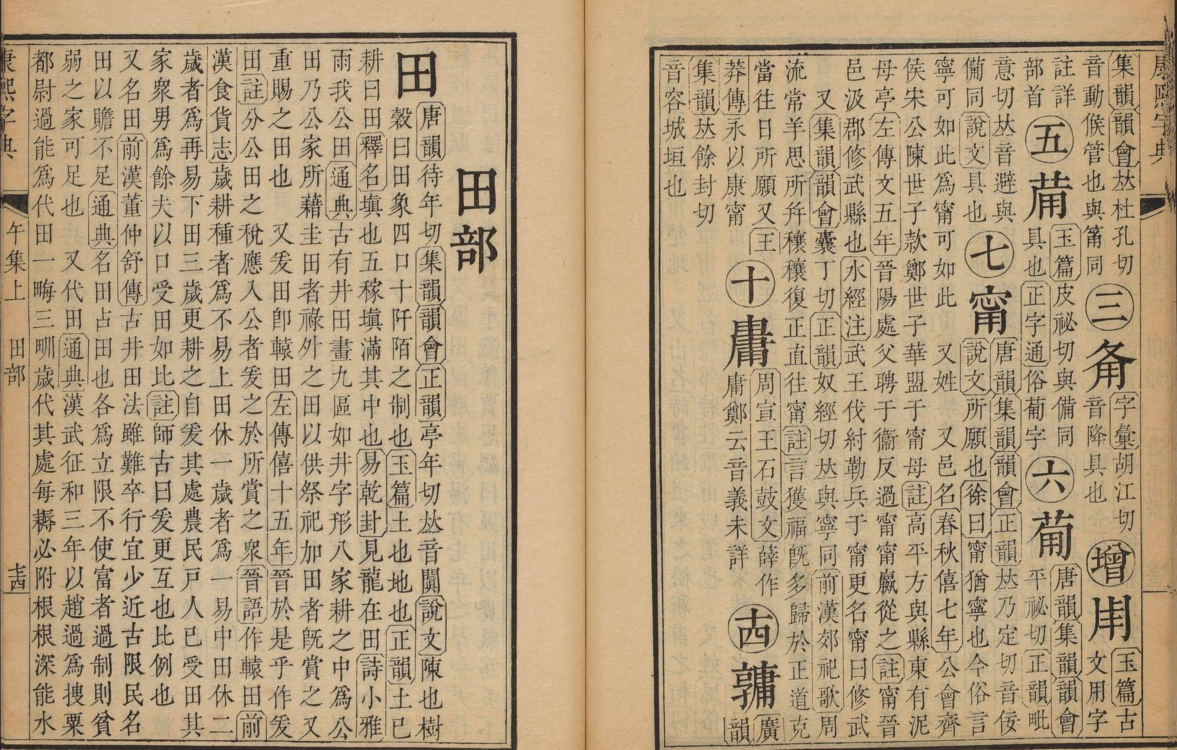 康熙字典
集韻韻會𠀤杜孔切
音動候管也與筩同
㊂夅字彙胡江切
音降具也
增𤰃玉篇古
文用字
註詳
部首
五𤰈玉篇皮祕切與備同
具也正字通俗葡字
六葡唐韻集韻韻會
平祕切正韻毗
意切𠀤音避與
僃同說文具也
七甯唐韻集韻韻會正韻𠀤乃定切音佞
說文所願也徐曰甯猶寧也今俗言
寧可如此爲甯可如此 又姓 又邑名春秋僖七年公會齊
侯宋公陳世子款鄭世子華盟于甯母註高平方與縣東有泥
母亭左傳文五年晉陽處父聘于衞反過甯甯嬴從之註晉
邑汲郡修武縣也水經注武王伐紂勒兵于甯更名甯曰修武
又集韻韻會囊丁切正韻奴經切𠀤與寧同前漢郊祀歌周
流常羊思所幷穰穰復正直往甯註言獲福旣多歸於正道克
當往日所願又王
莽傳永以康甯
十
周宣王石鼓文薛作
庸鄭云音義未詳
十四
廣
韻
集韻𠀤餘封切
音容城垣也
田部
田唐韻待年切集韻韻會正韻亭年切𠀤音闐說文陳也樹
穀曰田象四口十阡陌之制也玉篇土也地也正韻土已
耕曰田釋名塡也五稼塡滿其中也易乾封見龍在田詩小雅
雨我公田通典古有井田畫九區如井字形八家耕之中爲公
田乃公家所藉圭田者祿外之田以供祭祀加田者旣賞之又
重賜之田也 又爰田卽轅田左傳僖十五年晉於是乎作爰
田註分公田之稅應入公者爰之於所賞之衆晉語作轅田前
漢食貨志歲耕種者爲不易上田休一歲者爲一易中田休二
歲者爲再易下田三歲更耕之自爰其處農民戸人已受田其
家衆男爲餘夫以口受田如比註師古曰爰更互也比例也
又名田前漢董仲舒傳古井田法雖難卒行宜少近古限民名
田以贍不足通典名田占田也各爲立限不使富者過制則貧
弱之家可足也 又代田通典漢武征和三年以趙過爲搜粟
都尉過能爲代田一畮三甽歲代其處每耨必附根根深能水
康熙字典 午集上 田部 古